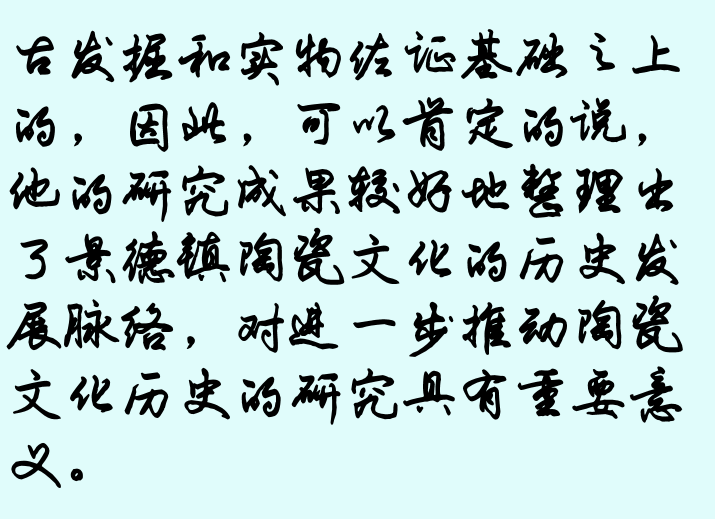 古发掘和实物佐证基础之上
的，因此，可以肯定的说，
他的研究成果较好地整理出
了景德镇陶瓷文化的历史发
展脉络，对进一步推动陶瓷
文化历史的研究具有重要意
义。